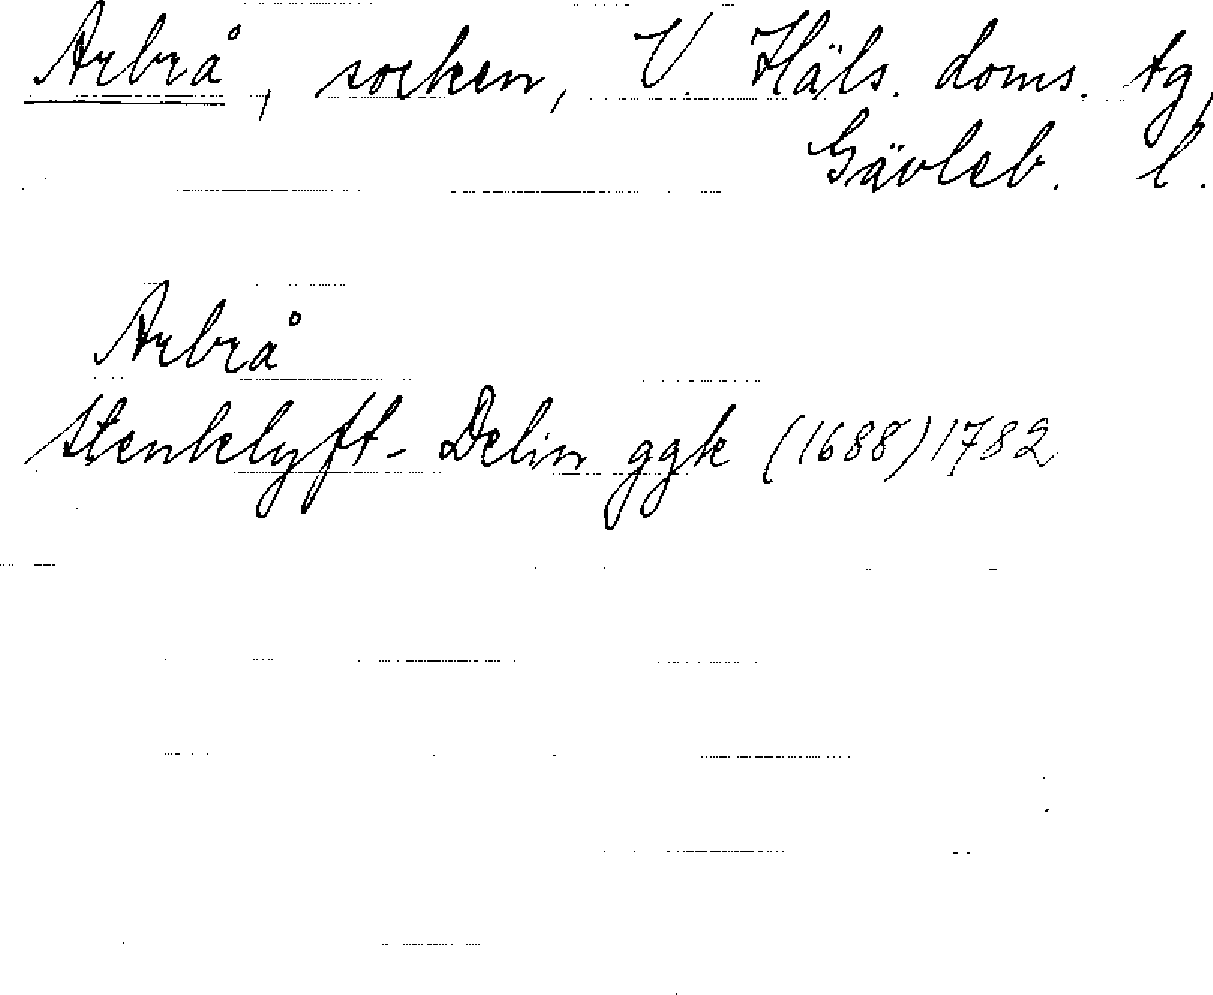 Arbrå, socken, V. Häls. doms. tg,
Gävleb. l.
Arbrå
Stenklyft- Delin ggk (1688) 1782